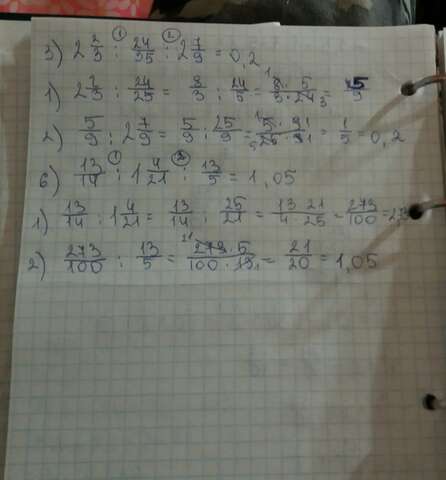 3) 2 2/3 : 24/35 : 2 7/9 = 0,2
1) 2 2/3 : 24/25 = 8/3 : 24/5 = 8 · 5 / 3 · 24 = 5/9
2) 5/9 : 2 7/9 = 5/9 : 25/9 = 5 · 9 / 25 · 9 = 1/5 = 0,2
6) 13/14 : 1 4/21 : 13/5 = 1,05
1) 13/14 : 1 4/21 = 13/14 : 25/21 = 13 21 / 4 · 25 = 273/100 = 2,73
2) 273/100 : 13/5 = 273 · 5 / 100 · 13 = 21/20 = 1,05